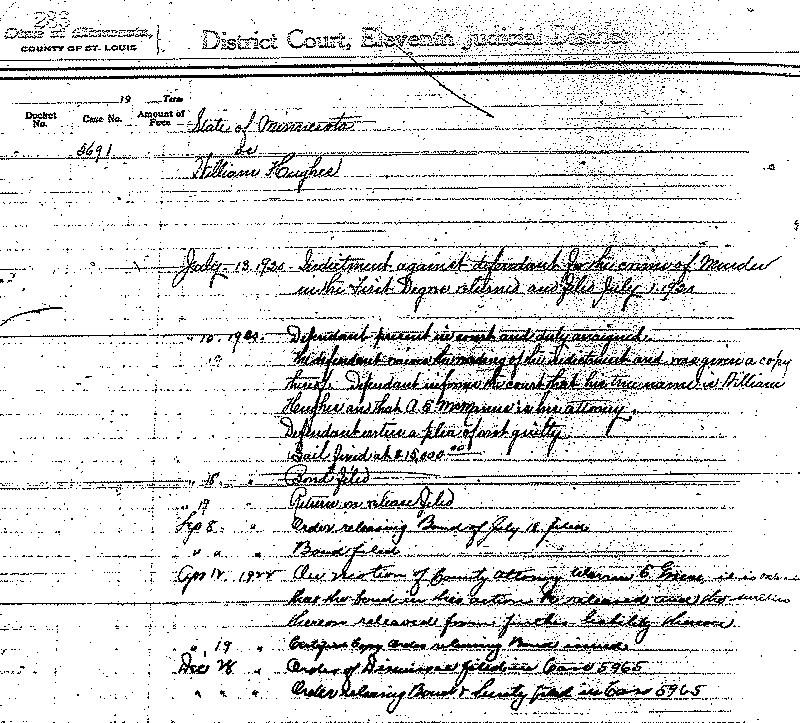 283
State of Minnesota,
COUNTY OF ST. LOUIS
District Court, Eleventh Judicial District
19 Term
Docket No. Case No. Amount of Fees
State of Minnesota
5691 vs
William Hughes
July 13 1920 Indictment against defendant for the crime of Murder
in the First Degree returned and filed July 1920
" 10 1920 Defendant present in court and duly arraigned.
The defendant waives the reading of the Indictment and was given a copy
thereof. Defendant informs the court that his true name is William
Hughes and that A E is his attorney.
Defendant enters a plea of not guilty
Bail fixed at $15,000 00
" 18 " Bond filed
" 19 Return on release filed
Sep 8 " Order releasing Bond of July 18 filed
" " " Bond filed
Apr 12 1922 On motion of County Attorney Warren E Greene, it is
that the bond in this action be released and the sureties
thereon released from further liability thereon
" 19 " Certified Copy Order releasing Bond issued.
Dec 28 " Order of Dismissal filed in Case 5965
" " " Order releasing Bond & Surety filed in Case 5965